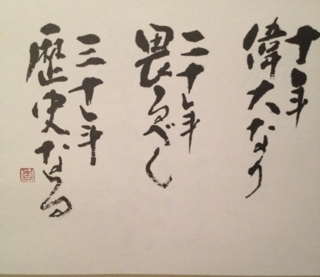 十年
偉大なり
二十年
畏るべし
三十年
歴史なる